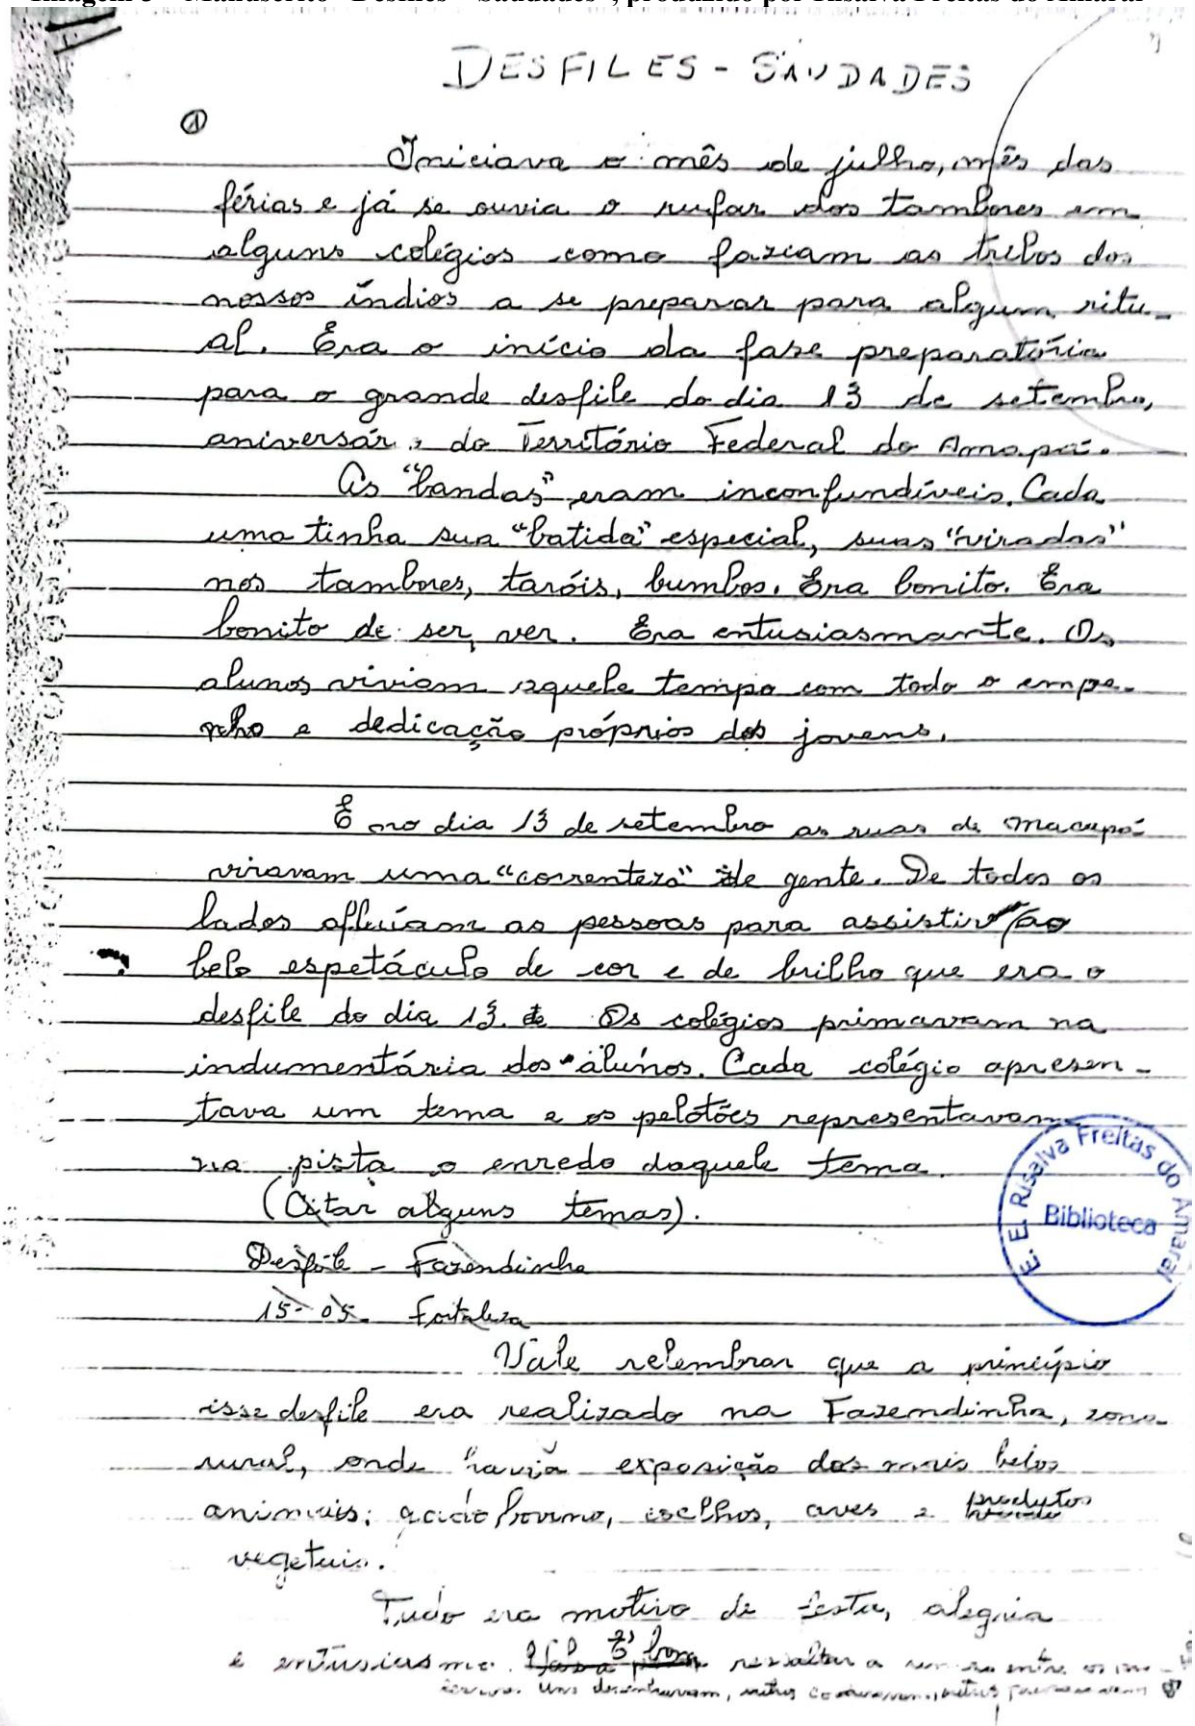 DESFILES - SAUDADES
①
Iniciava o mês de julho, mês das
férias e já se ouvia o rufar dos tambores em
alguns colégios como faziam as tribos dos
nossos índios a se preparar para algum ritu-
al. Era o início da fase preparatória
para o grande desfile do dia 13 de setembro,
do Território Federal do Amapá.
As "bandas" eram inconfundíveis. Cada
uma tinha sua "batida" especial, suas "viradas"
nos tambores, taróis, bumbos. Era bonito. Era
bonito de ser ver. Era entusiasmante. Os
alunos viviam aquele tempo com todo o empe-
nho e dedicação próprios dos jovens.
E no dia 13 de setembro as ruas de Macapá
viravam uma "correnteza" de gente. De todos os
lados afluíam as pessoas para assistir ao
belo espetáculo de cor e de brilho que era o
desfile do dia 13. Os colégios primavam na
indumentária dos alunos. Cada colégio apresen-
tava um tema e os pelotões representavam
na pista o enredo daquele tema.
(Citar alguns temas).
Desfile - Fazendinha
15-05- Fortaleza
Vale relembrar que a princípio
esse desfile era realizado na Fazendinha, zona
rural, onde havia exposição dos mais belos
animais: gado bovino, coelhos, aves e produtos
vegetais.
Tudo era motivo de festa, alegria
e entusiasmo. É bom ressaltar a entre os
Uns desenhavam, outros outros
E. E. Risalva Freitas do Amaral
Biblioteca